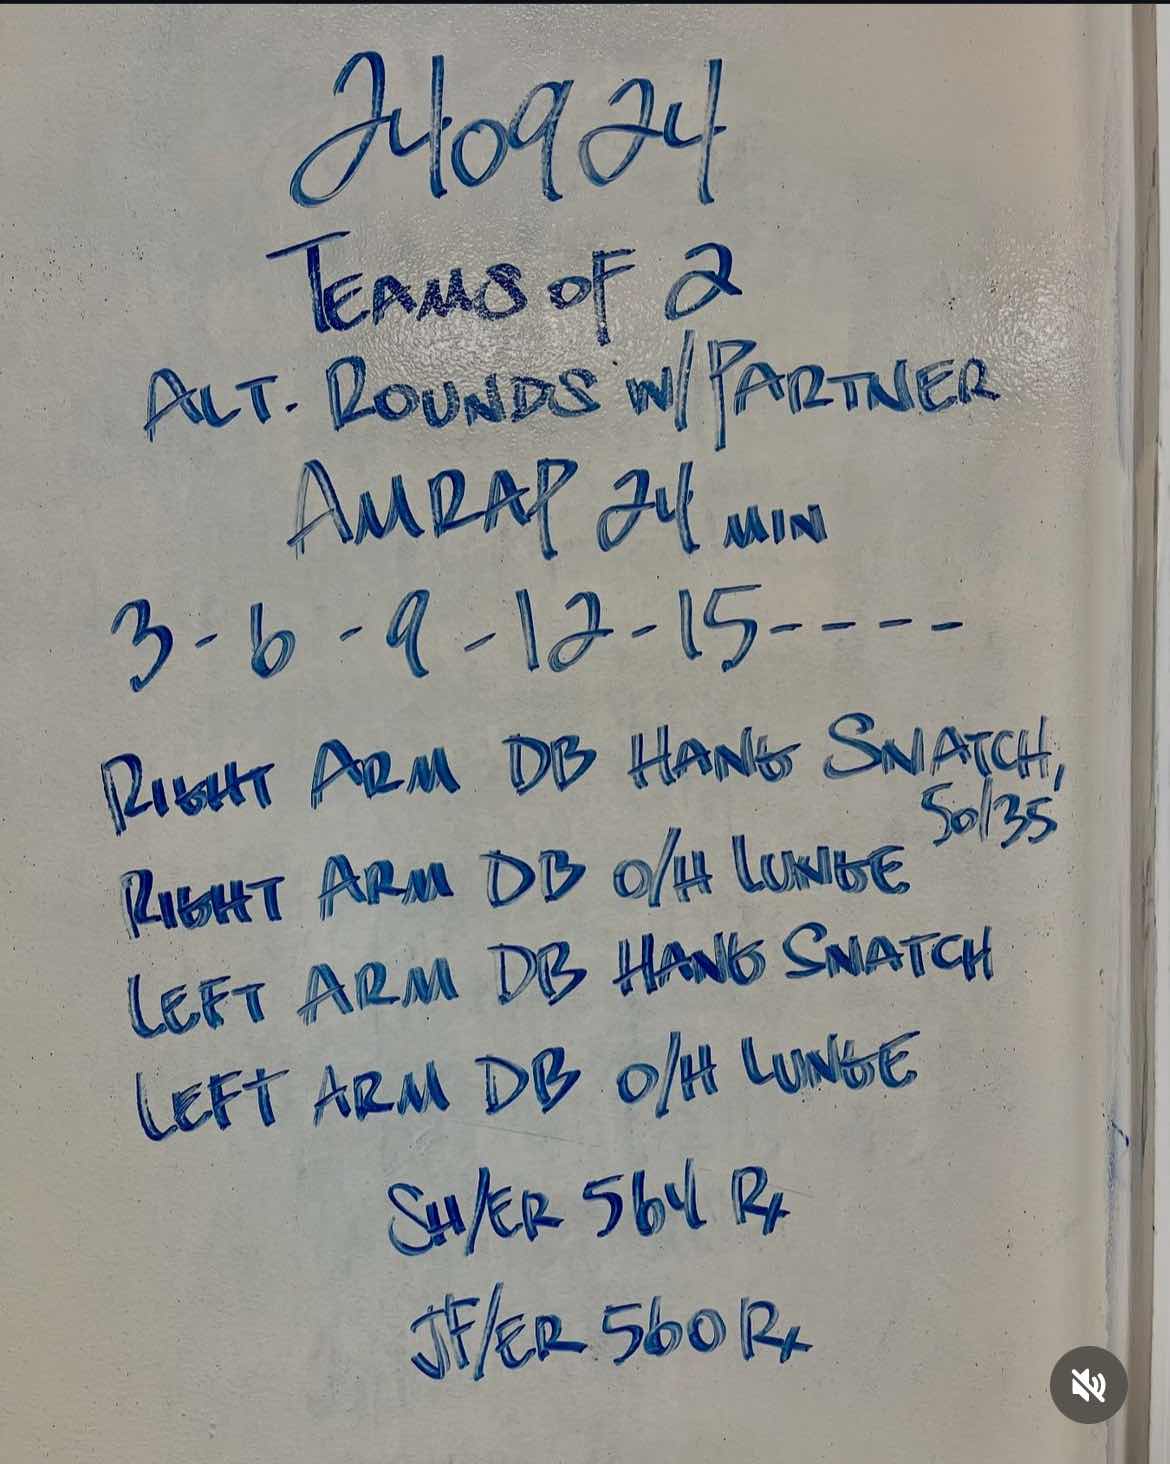 240924
TEAMS OF 2
ALT. ROUNDS W/ PARTNER
AMRAP 24 MIN
3-6-9-12-15-----
RIGHT ARM DB HANG SNATCH,
50/35
RIGHT ARM DB O/H LUNGE
LEFT ARM DB HANG SNATCH
LEFT ARM DB O/H LUNGE
SH/ER 564 Rx
JF/ER 560 Rx